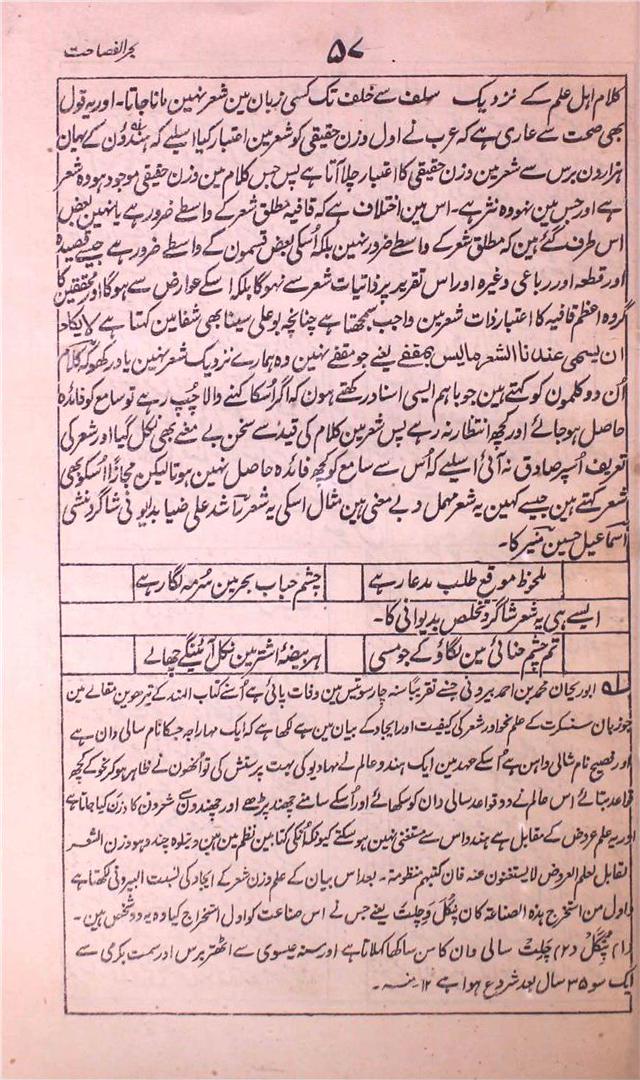 بحر الفصاحت
۵۷
کلام اہل علم کے نزدیک سلف سے خلف تک کسی زبان مین شعر نہین مانا جاتا۔ اور یہ قول
بھی صحت سے عاری ہے کہ عرب نے اول وزن حقیقی کو شعر مین اعتبار کیا اسلیے کہ ہندؤن کے یہان
ہزارون برس سے شعر مین وزن حقیقی کا اعتبار چلا آتا ہے پس جس کلام مین وزن حقیقی موجود ہو وہ شعر
ہے اور جس مین نہو وہ نثر ہے۔ اس مین اختلاف ہے کہ قافیہ مطلق شعر کے واسطے ضرور ہے یا نہین بعض
اس طرف گئے ہین کہ مطلق شعر کے واسطے ضرور نہین بلکہ اُسکی بعض قسمون کے واسطے ضرور ہے جیسے قصیدہ
اور قطعہ اور رباعی وغیرہ اور اس تقریر پر ذاتیات شعر سے نہوگا بلکہ اسکے عوارض سے ہوگا اور محققین کا
گروہ اعظم قافیہ کا اعتبار ذات شعر مین واجب سمجھتا ہے چنانچہ بوعلی سینا بھی شفا مین کہتا ہے لایکاد
ان یسمی عندنا الشعر ما لیس بمقفے یعنے جو مقفے نہین وہ ہمارے نزدیک شعر نہین یاد رکھو کہ کلام
اُن دو کلمون کو کہتے ہین جو باہم ایسی اسناد رکھتے ہون کہ اگر اُسکا کہنے والا چپ رہے تو سامع کو فائدہ
حاصل ہو جائے اور کچھ انتظار نہ رہے پس شعر مین کلام کی قید سے سخن بے معنے بھی نکل گیا اور شعر کی
تعریف اُسپر صادق نہ آئی اسلیے کہ اُس سے سامع کو کچھ فائدہ حاصل نہین ہوتا لیکن مجازاً اُسکو بھی
شعر کہتے ہین جیسے کہین یہ شعر مہمل و بے معنی ہین مثال اسکی یہ شعر راشد علی ضیا بدایونی شاگرد منشی
اسماعیل حسین منیر کا۔
ملحوظ موقع طلب مدعا رہے چشم حباب بحر مین سُرمہ لگا رہے
ایسے ہی یہ شعر شاگرد تخلص بدیوانی کا۔
تم چشم حنائی مین لگاؤ کے جو مسی ہر بیضۂ اشتر مین نکل آئینگے چھالے
لہ ابوریحان محمد بن احمد بیرونی جسنے تقریباً سنہ چار سو تیس مین وفات پائی ہے اُسنے کتاب الہند کے تیرہوین مقالے مین
جو زبان سنسکرت کے علم نحو اور شعر کی کیفیت اور ایجاد کے بیان مین ہے لکھا ہے کہ ایک مہاراجہ جسکا نام سالی وان ہے
اور فصیح نام شالی واہن ہے اُسکے عہد مین ایک ہندو عالم نے مہادیو کی بہت پرستش کی تو اُنھون نے ظاہر ہو کر نحو کے کچھ
قواعد بتائے اس عالم نے وہ قواعد سالی دان کو سکھائے اور اُسکے سامنے چھند پڑھے اور چھندون سے شعرون کا وزن کیا جاتا ہے
اور یہ علم عروض کے مقابل ہے ہند اس سے مستغنی نہین ہو سکتے کیونکہ اُنکی کتابین نظم مین ہین ویتلوہ چند وہو وزن الشعر
المقابل لعلم العروض لا یستغنون عنہ فان کتبہم منظومۃ۔ بعد اس بیان کے علم وزن شعر کے ایجاد کی نسبت البیرونی لکھتا ہے
واول من استخرج ہذہ الصناعۃ کان پنگل و چلت یعنے جس نے اس صناعت کو اول استخراج کیا وہ یہ دو شخص ہین۔
(۱) پنگل (۲) چلت سالی وان کا سن ساکھا کہلاتا ہے اور سنہ عیسوی سے اٹھتر برس اور سمت بکری سے
ایک سو ۳۵ سال بعد شروع ہوا ہے ۱۲ منہ۔